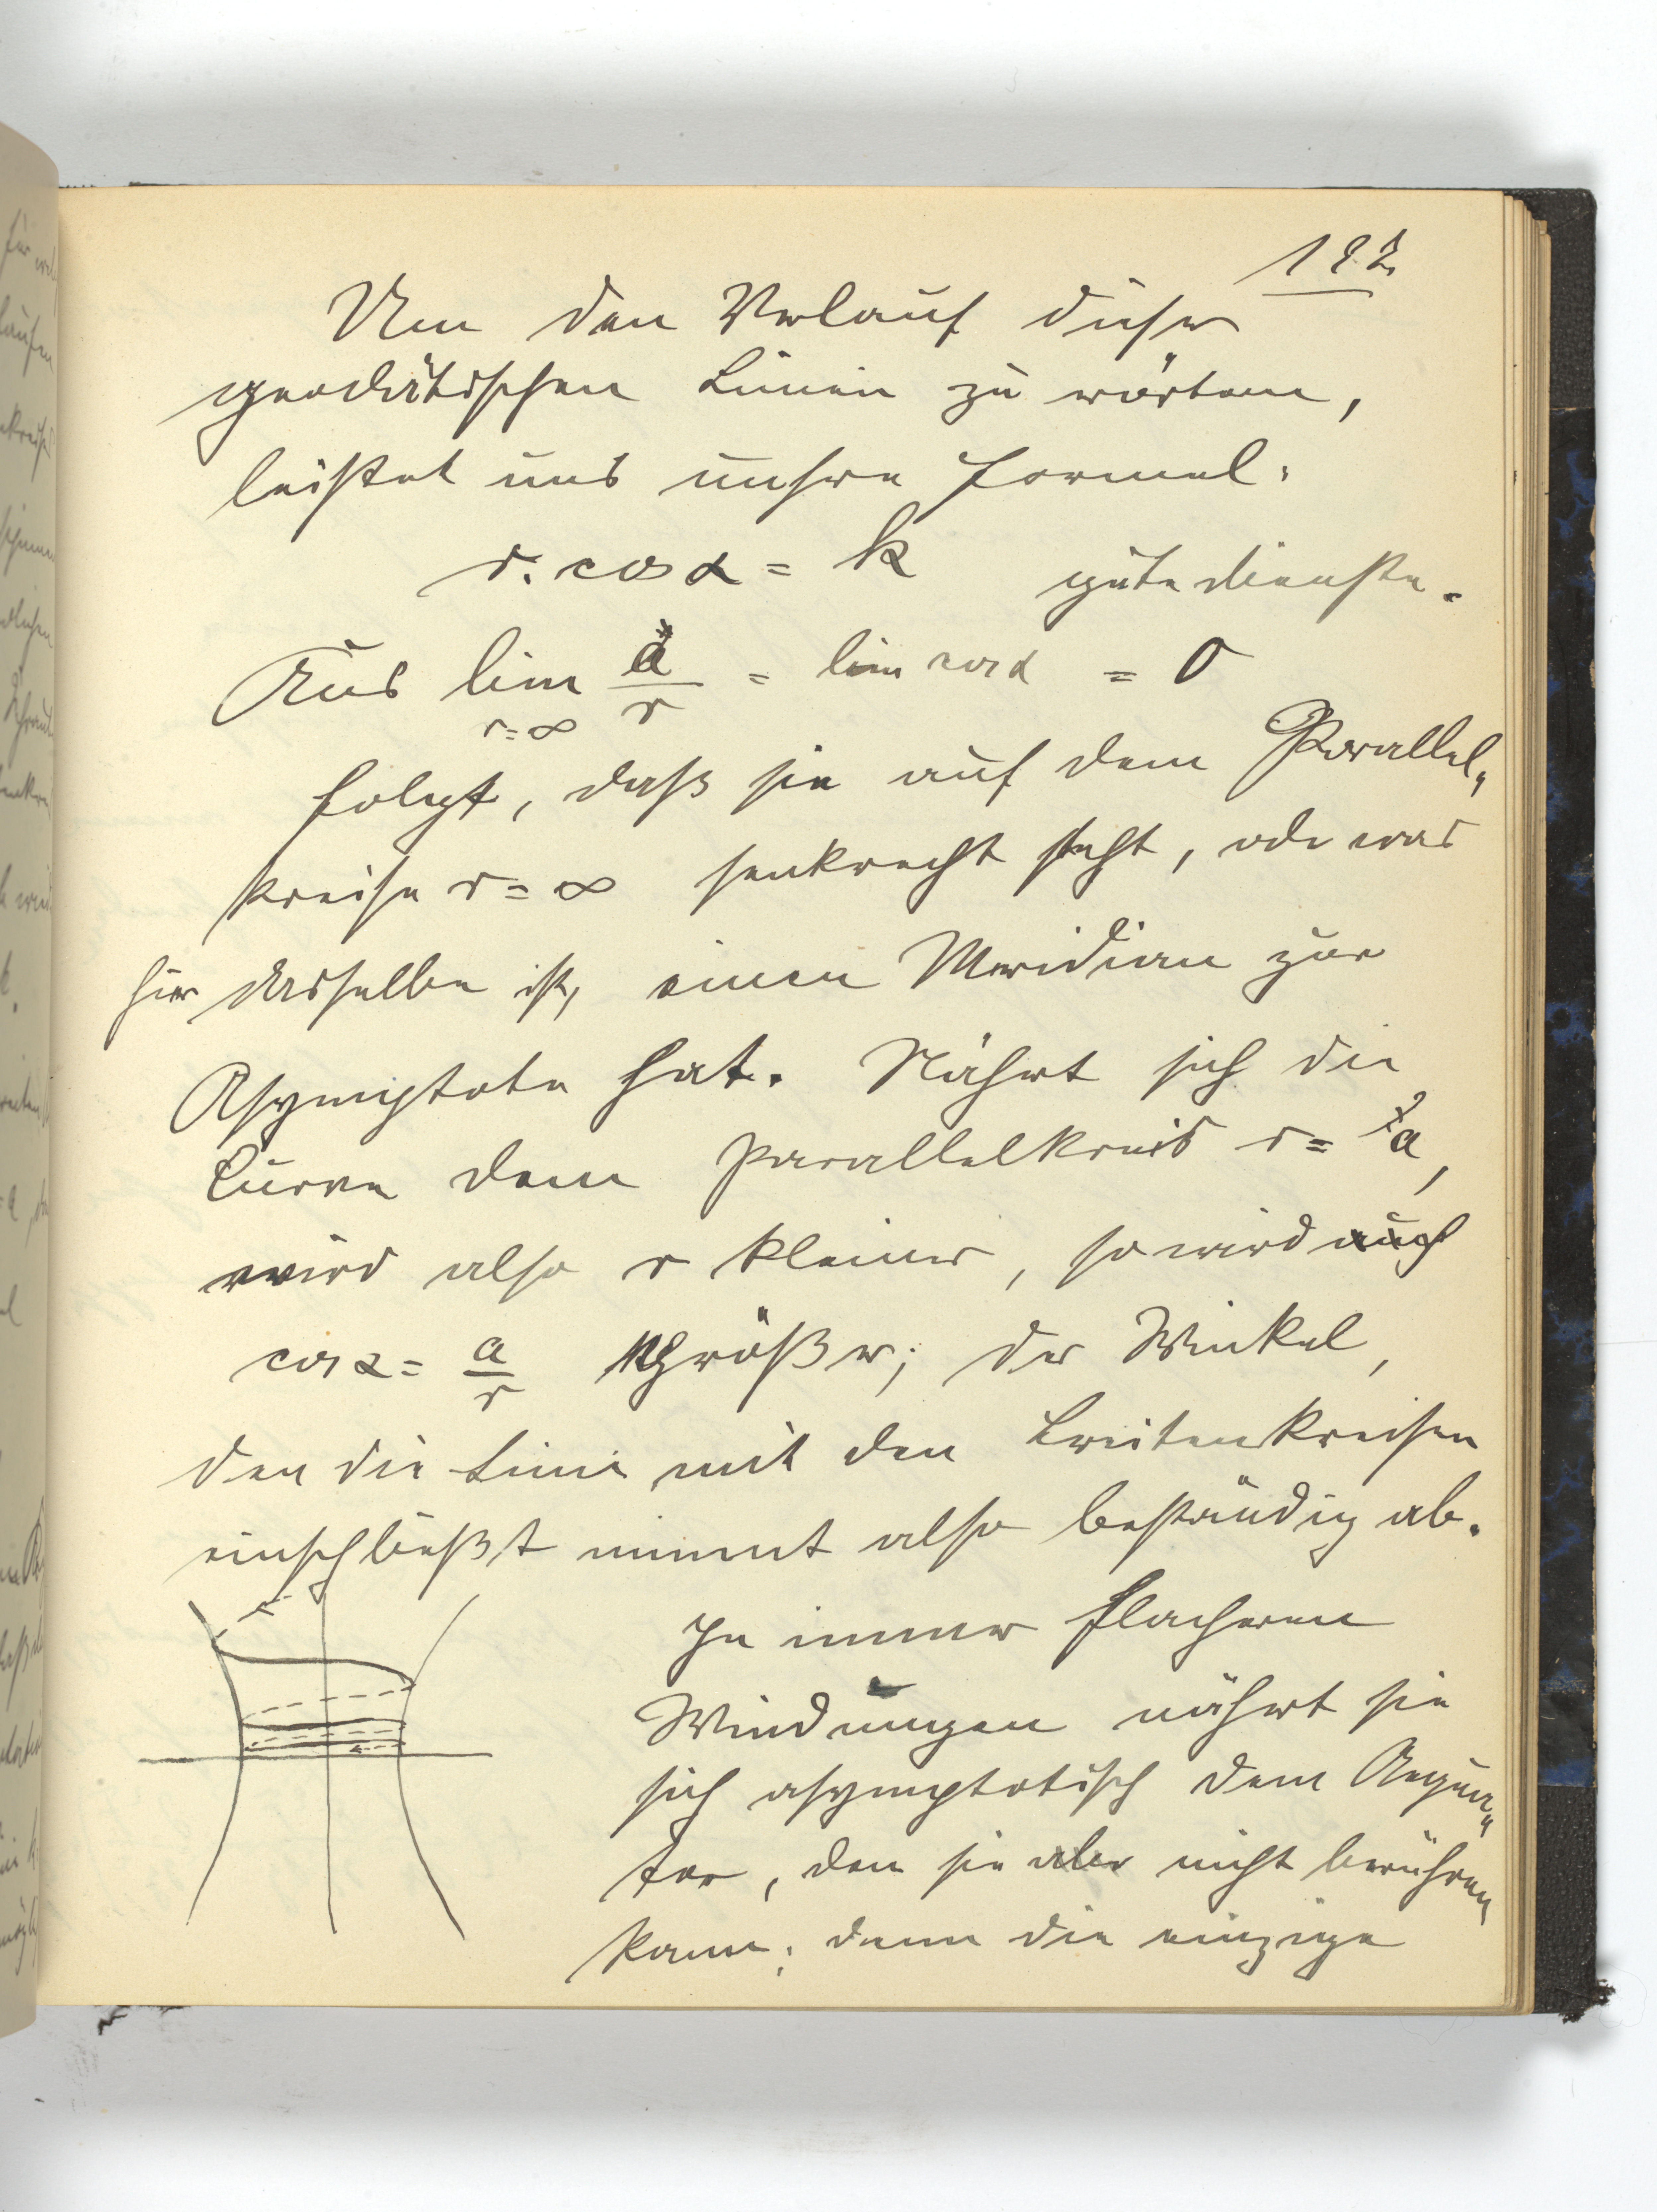 192
Um den Verlauf dieser
geodätischen Linien zu erörtern,
leistet uns unsre Formel:
r. cos α = k gute Dienste.
Aus lim a/r = lim cos α = 0
r=∞
folgt, daß sie auf dem Parallel„
kreise r = ∞ senkrecht steht, oder was
hier dasselbe ist, einen Meridian zur
Asymptote hat. Nähert sich die
Curve dem Parallelkreis r = a,
wird also r kleiner, so wird auch
cos α = a/r größer; der Winkel,
den die Linie mit den Breitenkreisen
einschließt nimmt also beständig ab.
In immer flacheren
Windungen nähert sie
sich asymptotisch dem Aequa„
tor, den sie aber nicht berühren
kann; denn die einzige